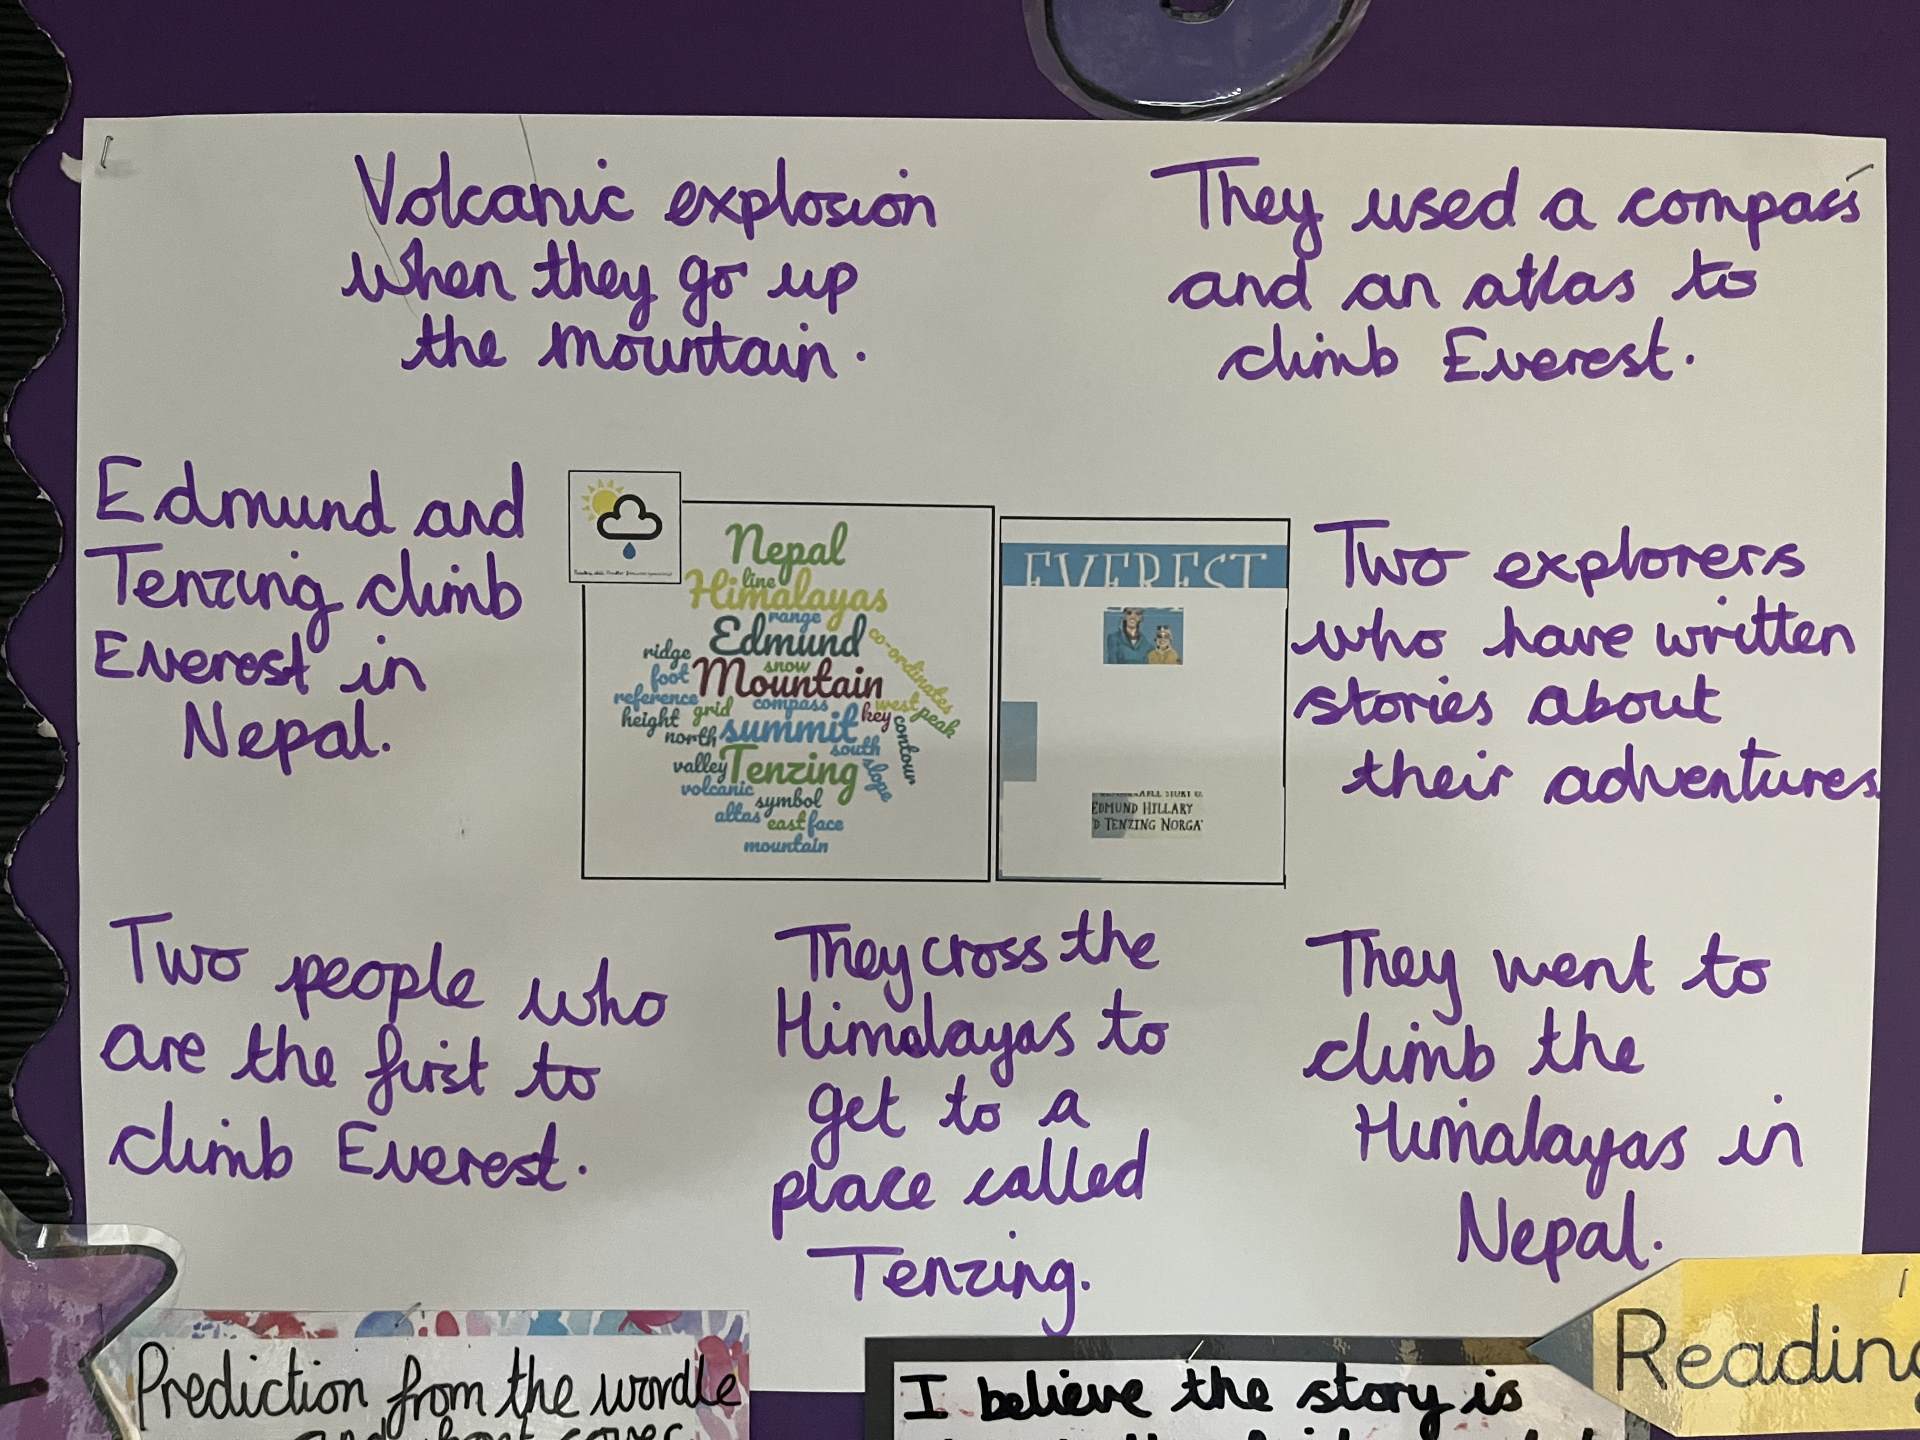 Volcanic explosion
when they go up
the mountain.
They used a compass
and an atlas to
climb Everest.
Edmund and
Tenzing climb
Everest in
Nepal.
Nepal
line
Himalayas
range
Edmund
co-ordinates
ridge
snow
foot
Mountain
reference
compass
west
peak
height
grid
key
north
summit
contour
south
valley
Tenzing
slope
volcanic
symbol
altas
east
face
mountain
EVEREST
EDMUND HILLARY
D TENZING NORGA
Two explorers
who have written
stories about
their adventures
Two people who
are the first to
climb Everest.
They cross the
Himalayas to
get to a
place called
Tenzing.
They went to
climb the
Himalayas in
Nepal.
Prediction from the wordle
I believe the story is
Reading